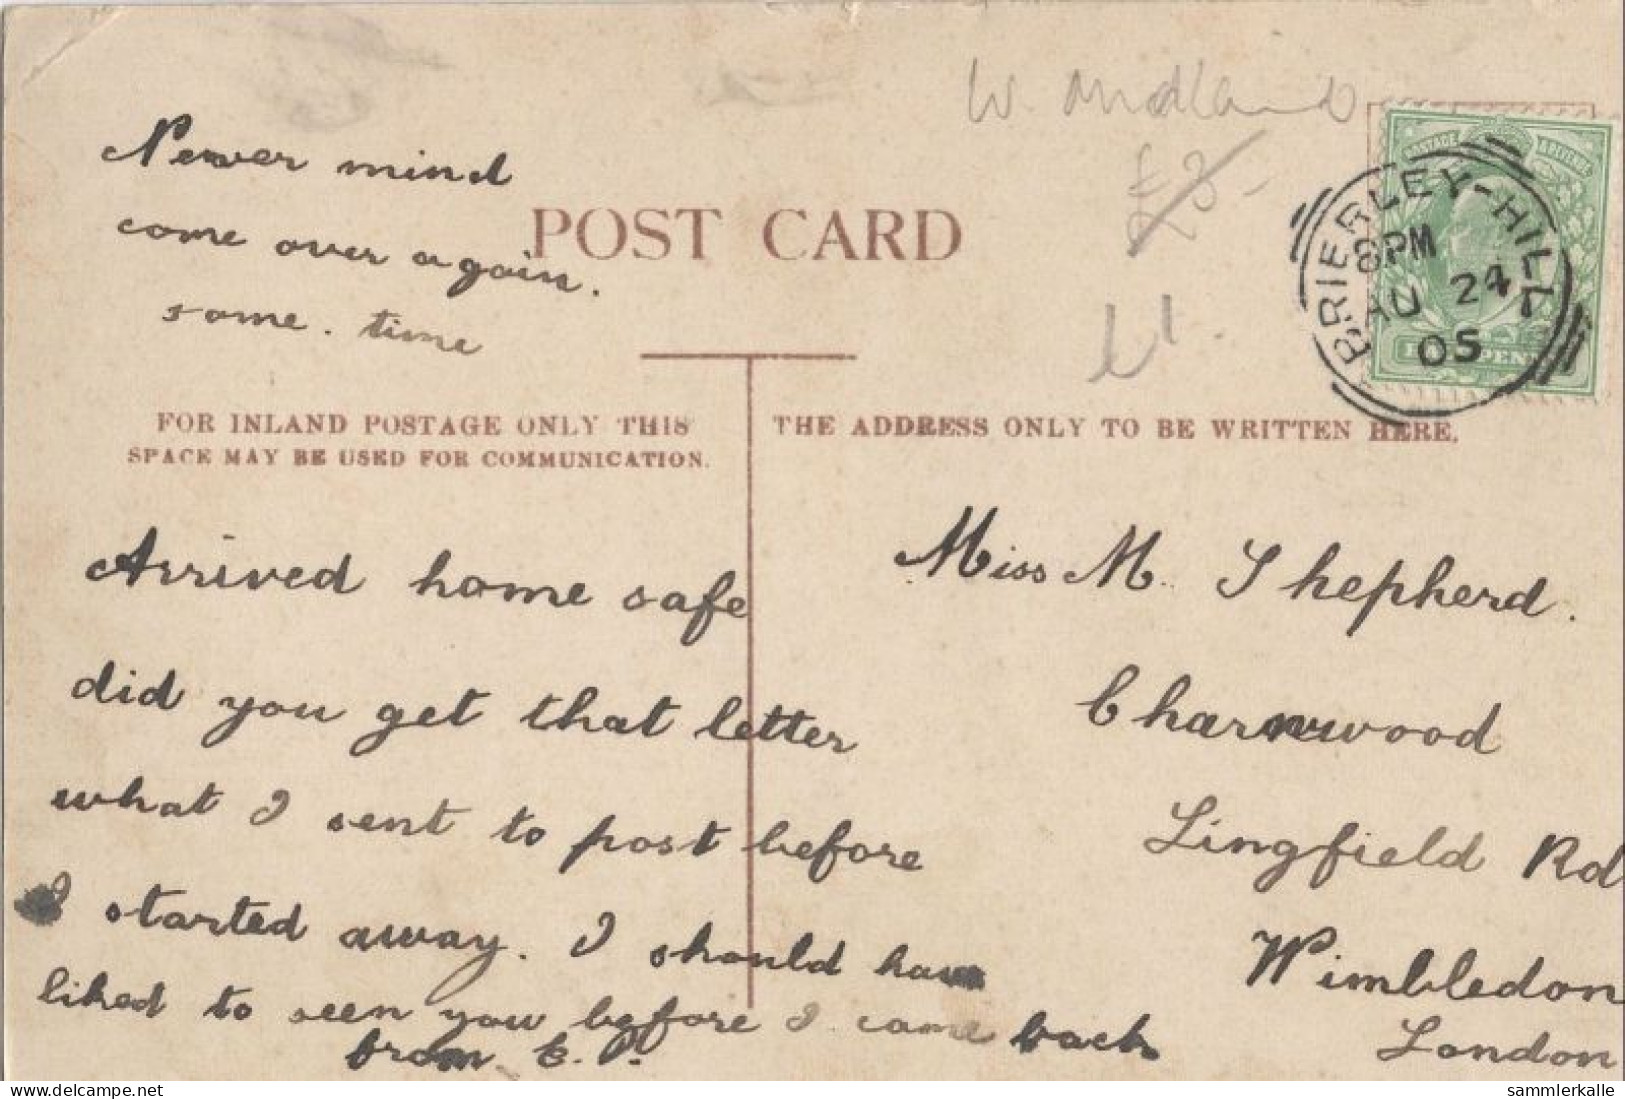 W. Midland
£3-
£1.
Never mind
come over again.
some. time
POST CARD
POSTAGE & REVENUE
HALFPENNY
BRIERLEY-HILL
8PM
AU 24
05
FOR INLAND POSTAGE ONLY THIS
SPACE MAY BE USED FOR COMMUNICATION.
THE ADDRESS ONLY TO BE WRITTEN HERE.
Arrived home safe
did you get that letter
what I sent to post before
I started away. I should have
liked to seen you before I came back
from E. P.
Miss M. Shepherd.
Charnwood
Lingfield Rd
Wimbledon
London
www.delcampe.net
sammlerkalle